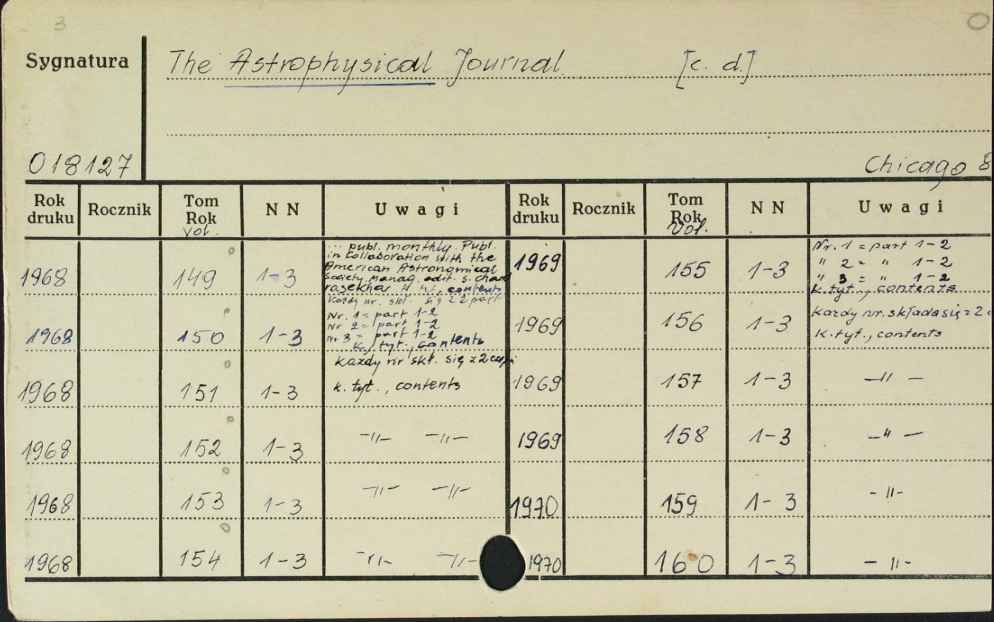 3
Sygnatura The Astrophysical Journal [c. d.]
018127 Chicago 8
Rok druku Rocznik Tom Rok vol. NN Uwagi Rok druku Rocznik Tom Rok Vol. NN Uwagi
1968 149 1-3
publ. monthly. Publ.
in Collaboration with the
American Astronomical
Society. manag. edit. S. Chand
rasekhar. contents
Każdy nr. skł. się z 2 part
1969 155 1-3
Nr. 1 = part 1-2
" 2 = " 1-2
" 3 = " 1-2
k. tyt., contents
1968 150 1-3
Nr. 1 = part 1-2
Nr 2 = part 1-2
nr 3 - part 1-2
k. tyt., contents
1969 156 1-3
Każdy nr. składa się z 2
k. tyt., contents
1968 151 1-3
każdy nr skł. się z 2 części
k. tyt., contents
1969 157 1-3 -"-
1968 152 1-3 -"- -"-
1969 158 1-3 -"-
1968 153 1-3 -"- -"-
1970 159 1-3 -"-
1968 154 1-3 -"- -"-
1970 160 1-3 -"-